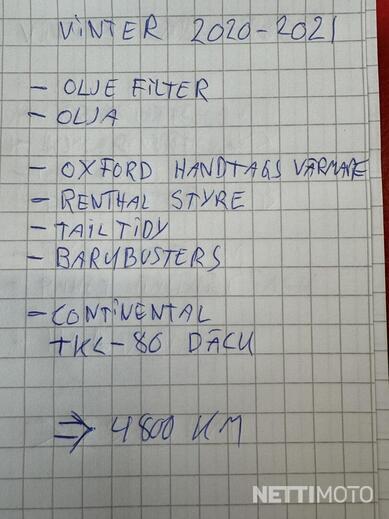 VINTER 2020-2021
- OLJE FILTER
- OLJA
- OXFORD HANDTAGS VÄRMARE
- RENTHAL STYRE
- TAIL TIDY
- BARKBUSTERS
- CONTINENTAL
TKC-80 DÄCK
⇒ 4800 KM
NETTIMOTO